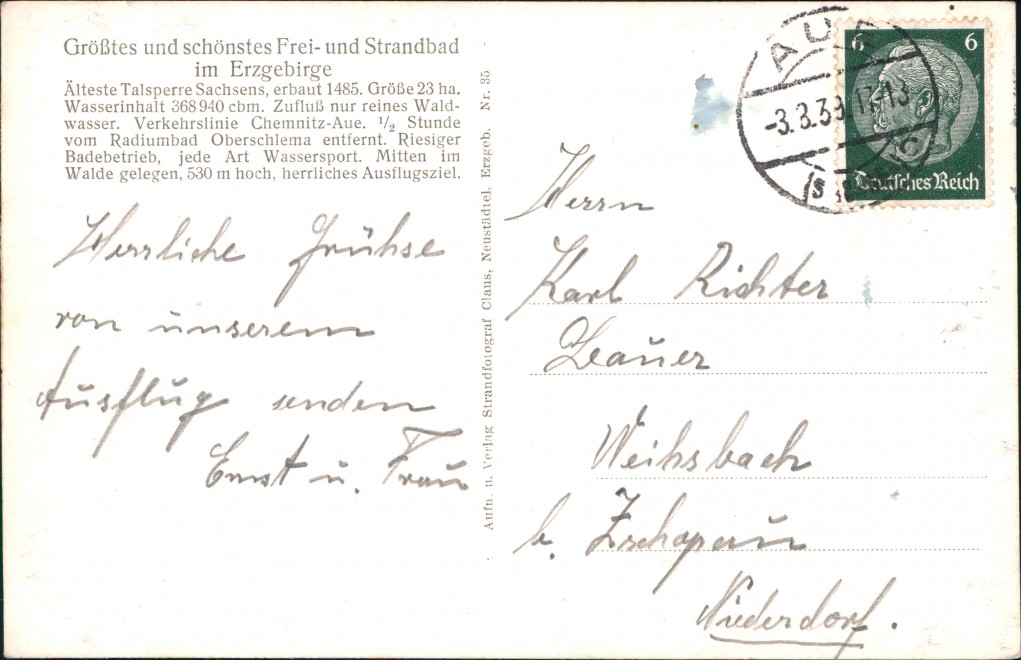 Größtes und schönstes Frei- und Strandbad
im Erzgebirge
Älteste Talsperre Sachsens, erbaut 1485. Größe 23 ha.
Wasserinhalt 368940 cbm. Zufluß nur reines Wald-
wasser. Verkehrslinie Chemnitz-Aue. ½ Stunde
vom Radiumbad Oberschlema entfernt. Riesiger
Badebetrieb, jede Art Wassersport. Mitten im
Walde gelegen, 530 m hoch, herrliches Ausflugsziel.
Herrliche Grühse
von unserem
Ausflug senden
Ernst u. Frau
Aufn. u. Verlag Strandfotograf Claus, Neustädtel. Erzgeb. Nr. 35
AUE
-3.3.39.17-13
6 6
Deutsches Reich
Herrn
Karl Richter
Bauer
Weihsbach
b. Zschopau
Niederdorf.